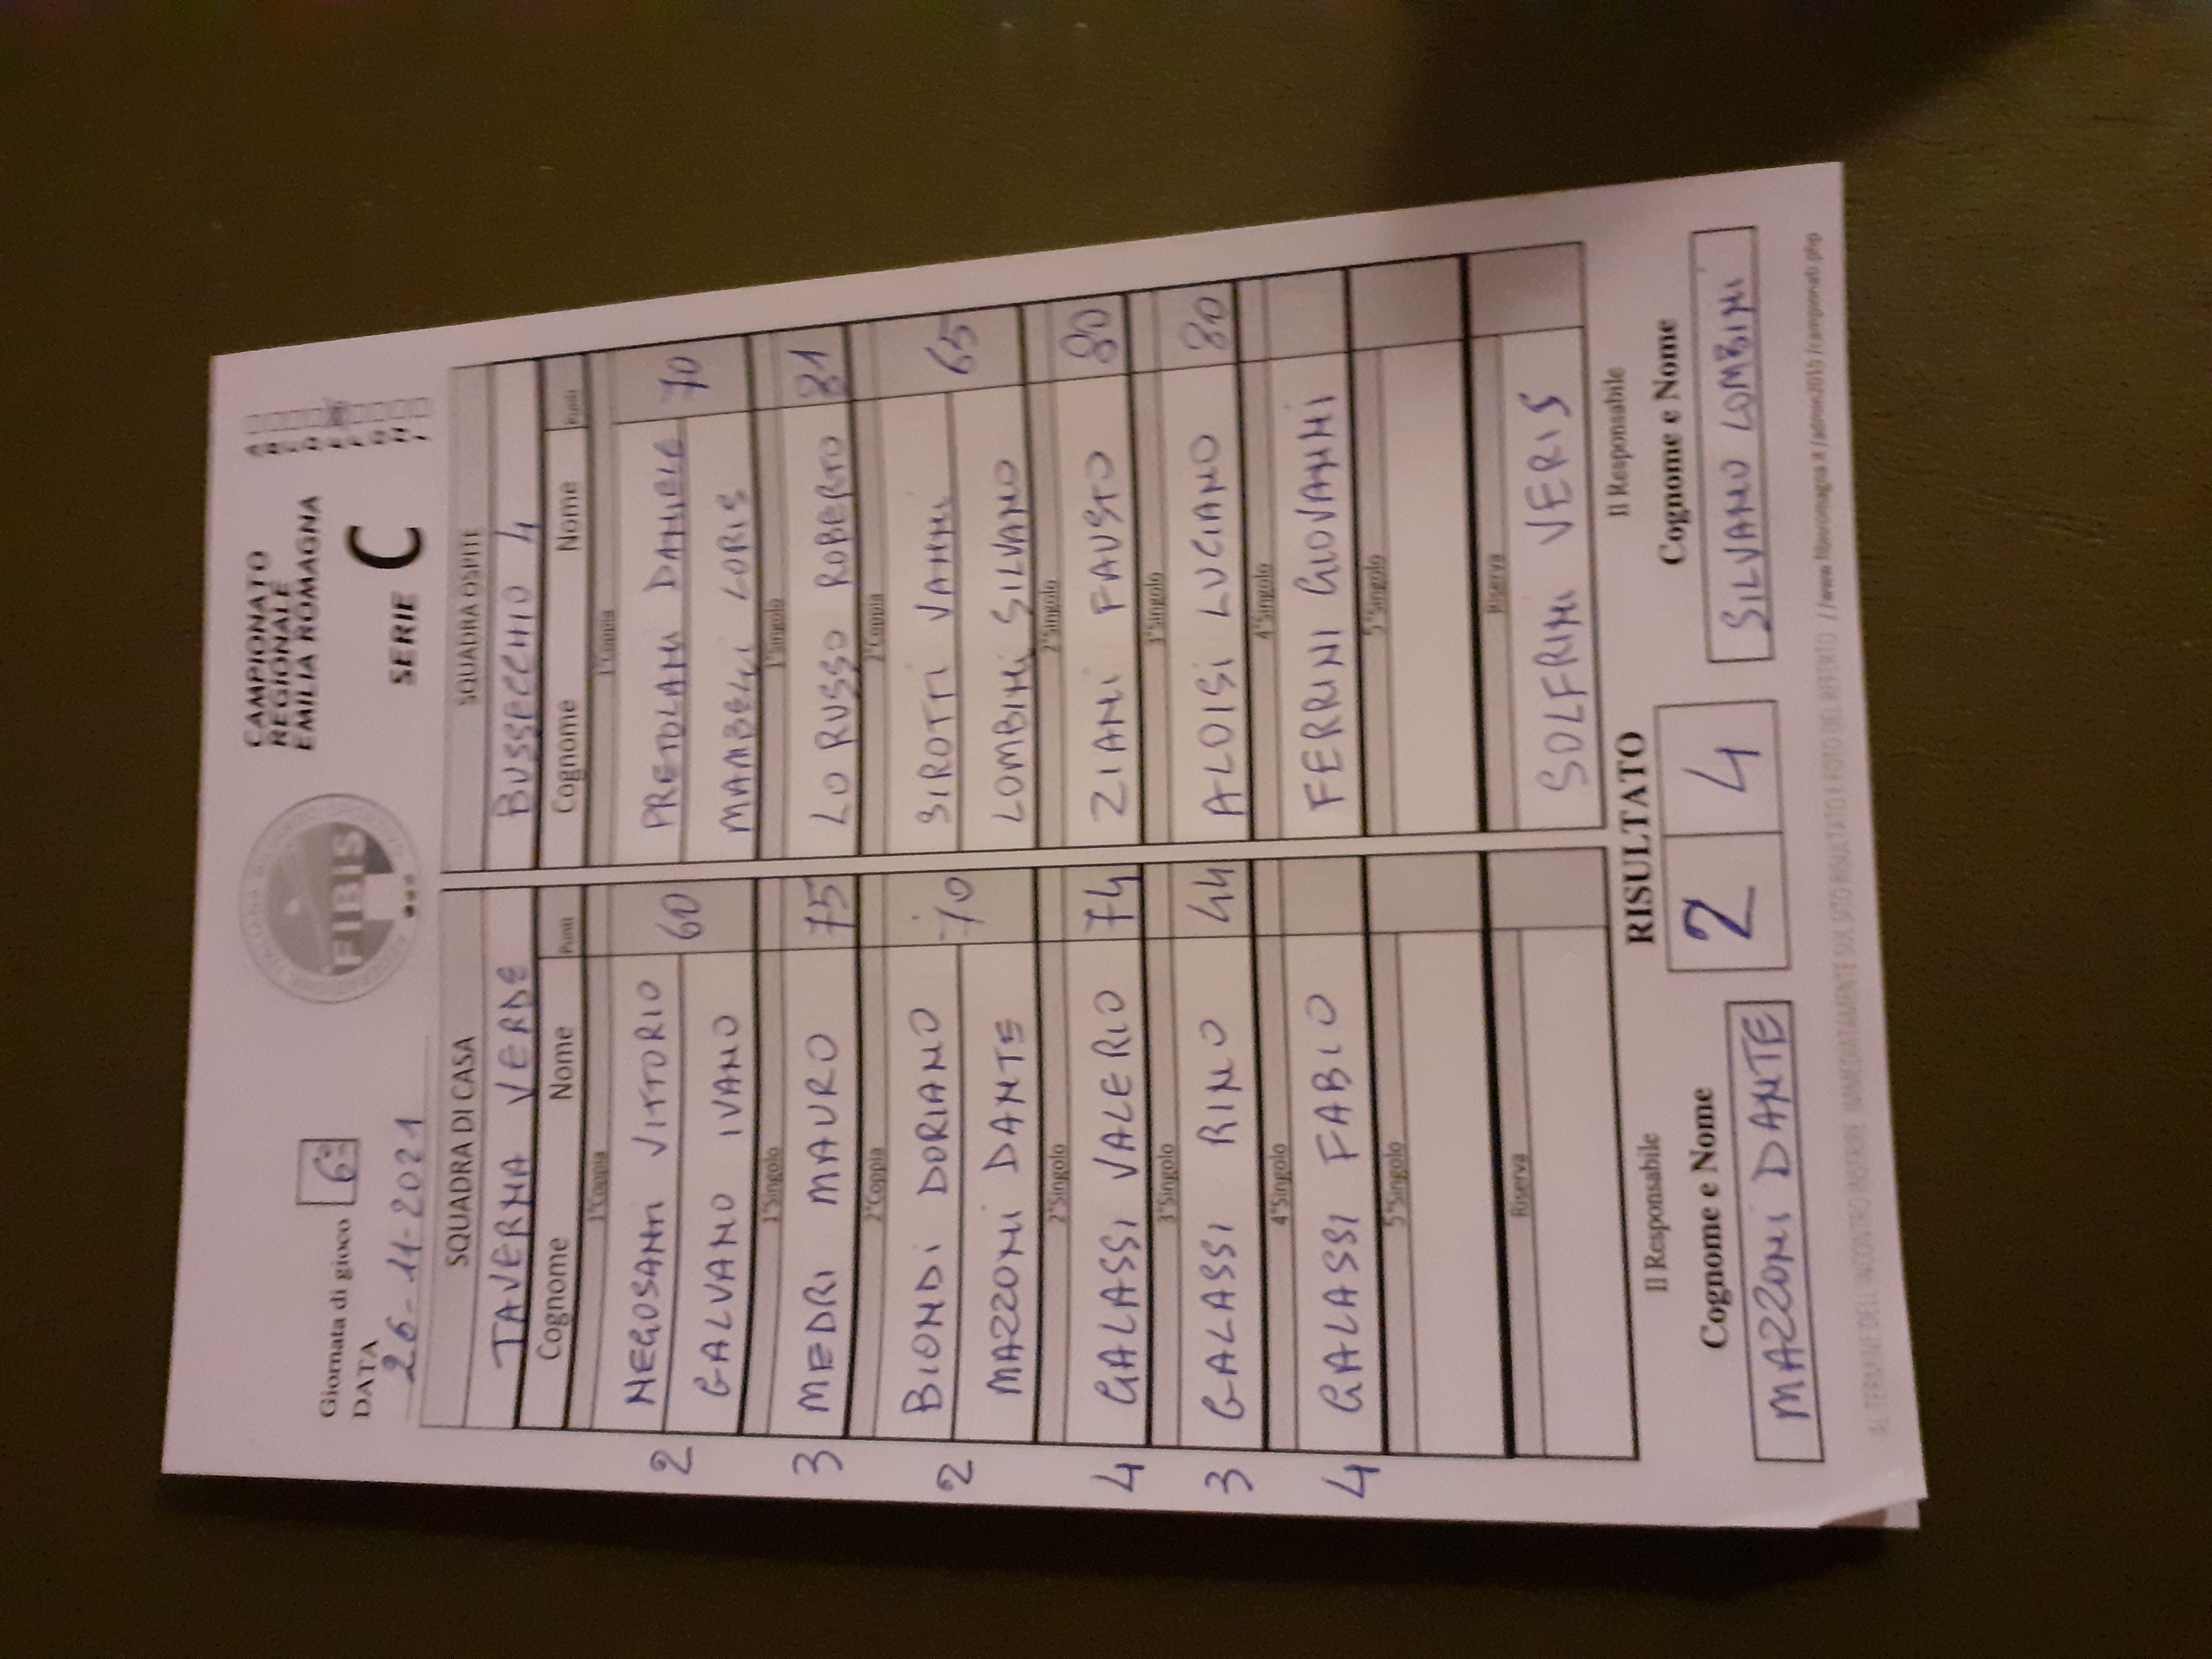 Giornata di gioco 6ª
DATA
26-11-2021
FIBIS
CAMPIONATO
REGIONALE
EMILIA ROMAGNA
SERIE C
SQUADRA DI CASA SQUADRA OSPITE
TAVERNA VERDE BUSSECCHIO 4
Cognome Nome Punti Cognome Nome Punti
1°Coppia 1°Coppia
2 NEGOSANTI VITTORIO 60 PRETOLANI DANIELE 70
GALVANO IVANO MAMBELLI LORIS
1°Singolo 1°Singolo
3 MEDRI MAURO 75 LO RUSSO ROBERTO 81
2°Coppia 2°Coppia
2 BIONDI DORIANO 70 SIROTTI VANNI 65
MAZZONI DANTE LOMBINI SILVANO
2°Singolo 2°Singolo
4 GALASSI VALERIO 74 ZIANI FAUSTO 80
3°Singolo 3°Singolo
3 GALASSI RINO 44 ALOISI LUCIANO 80
4°Singolo 4°Singolo
4 GALASSI FABIO FERRINI GIOVANNI
5°Singolo 5°Singolo
Riserva Riserva
SOLFRINI VERIS
Il Responsabile RISULTATO Il Responsabile
Cognome e Nome 2 4 Cognome e Nome
MAZZONI DANTE SILVANO LOMBINI
AL TERMINE DELL'INCONTRO INSERIRE IMMEDIATAMENTE SUL SITO RISULTATO E FOTO DEL REFERTO